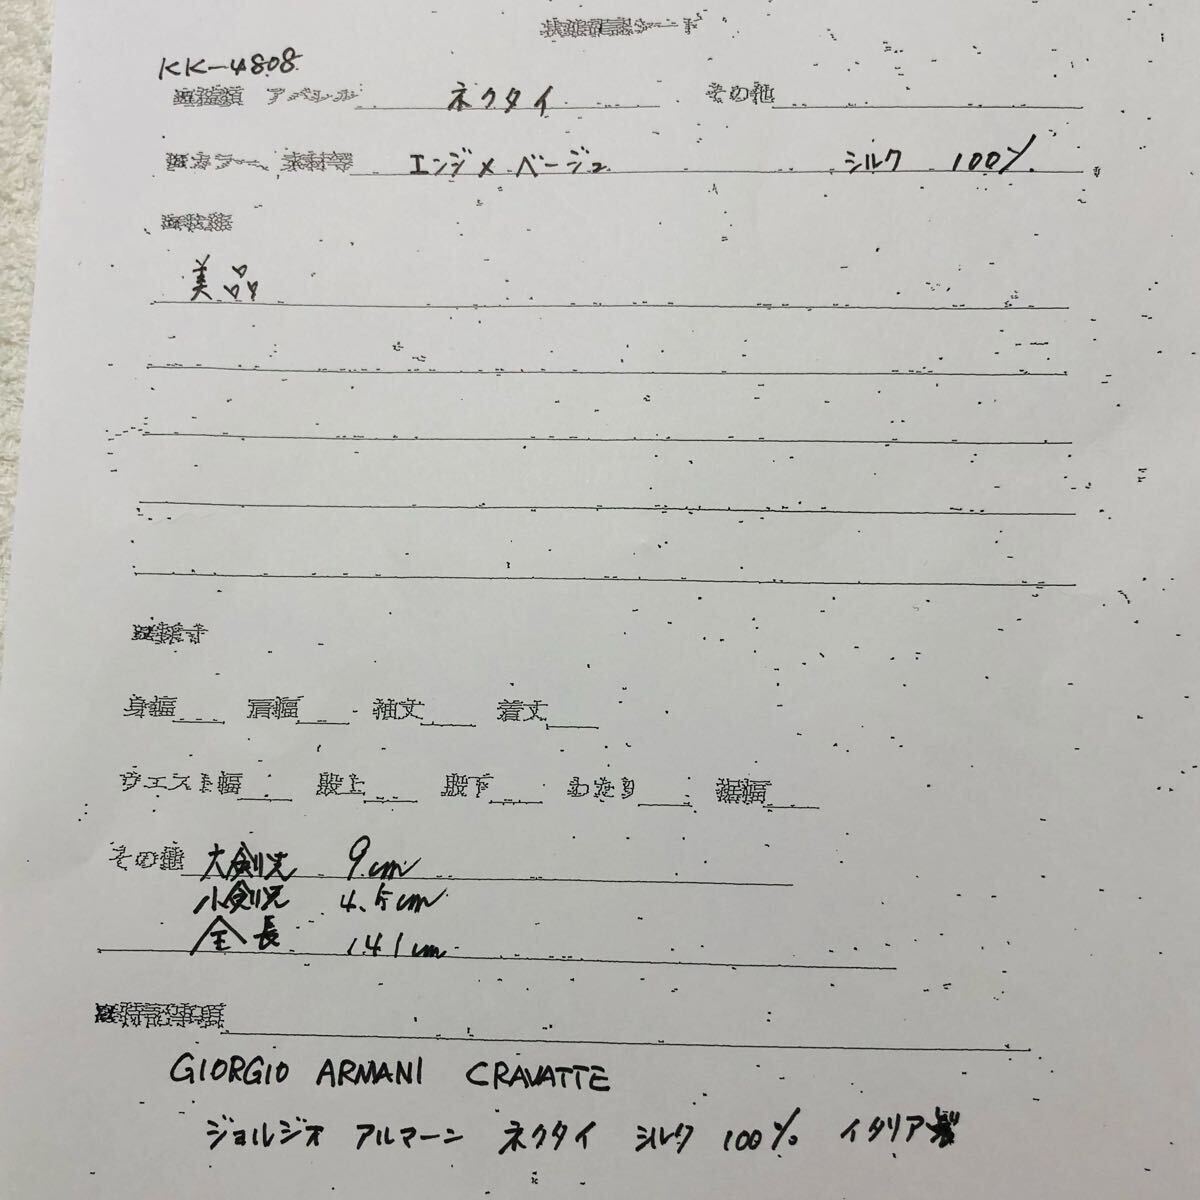 状態確認シート
KK-4808
アパレル ネクタイ その他
カラー 素材等 エンジ×ベージュ シルク 100%
状態
美品
採寸
身幅 肩幅 袖丈 着丈
ウエスト幅 股上 股下 わたり 裾幅
その他 大剣先 9cm
小剣先 4.5cm
全長 141cm
特記事項
GIORGIO ARMANI CRAVATTE
ジョルジオ アルマーニ ネクタイ シルク 100% イタリア製